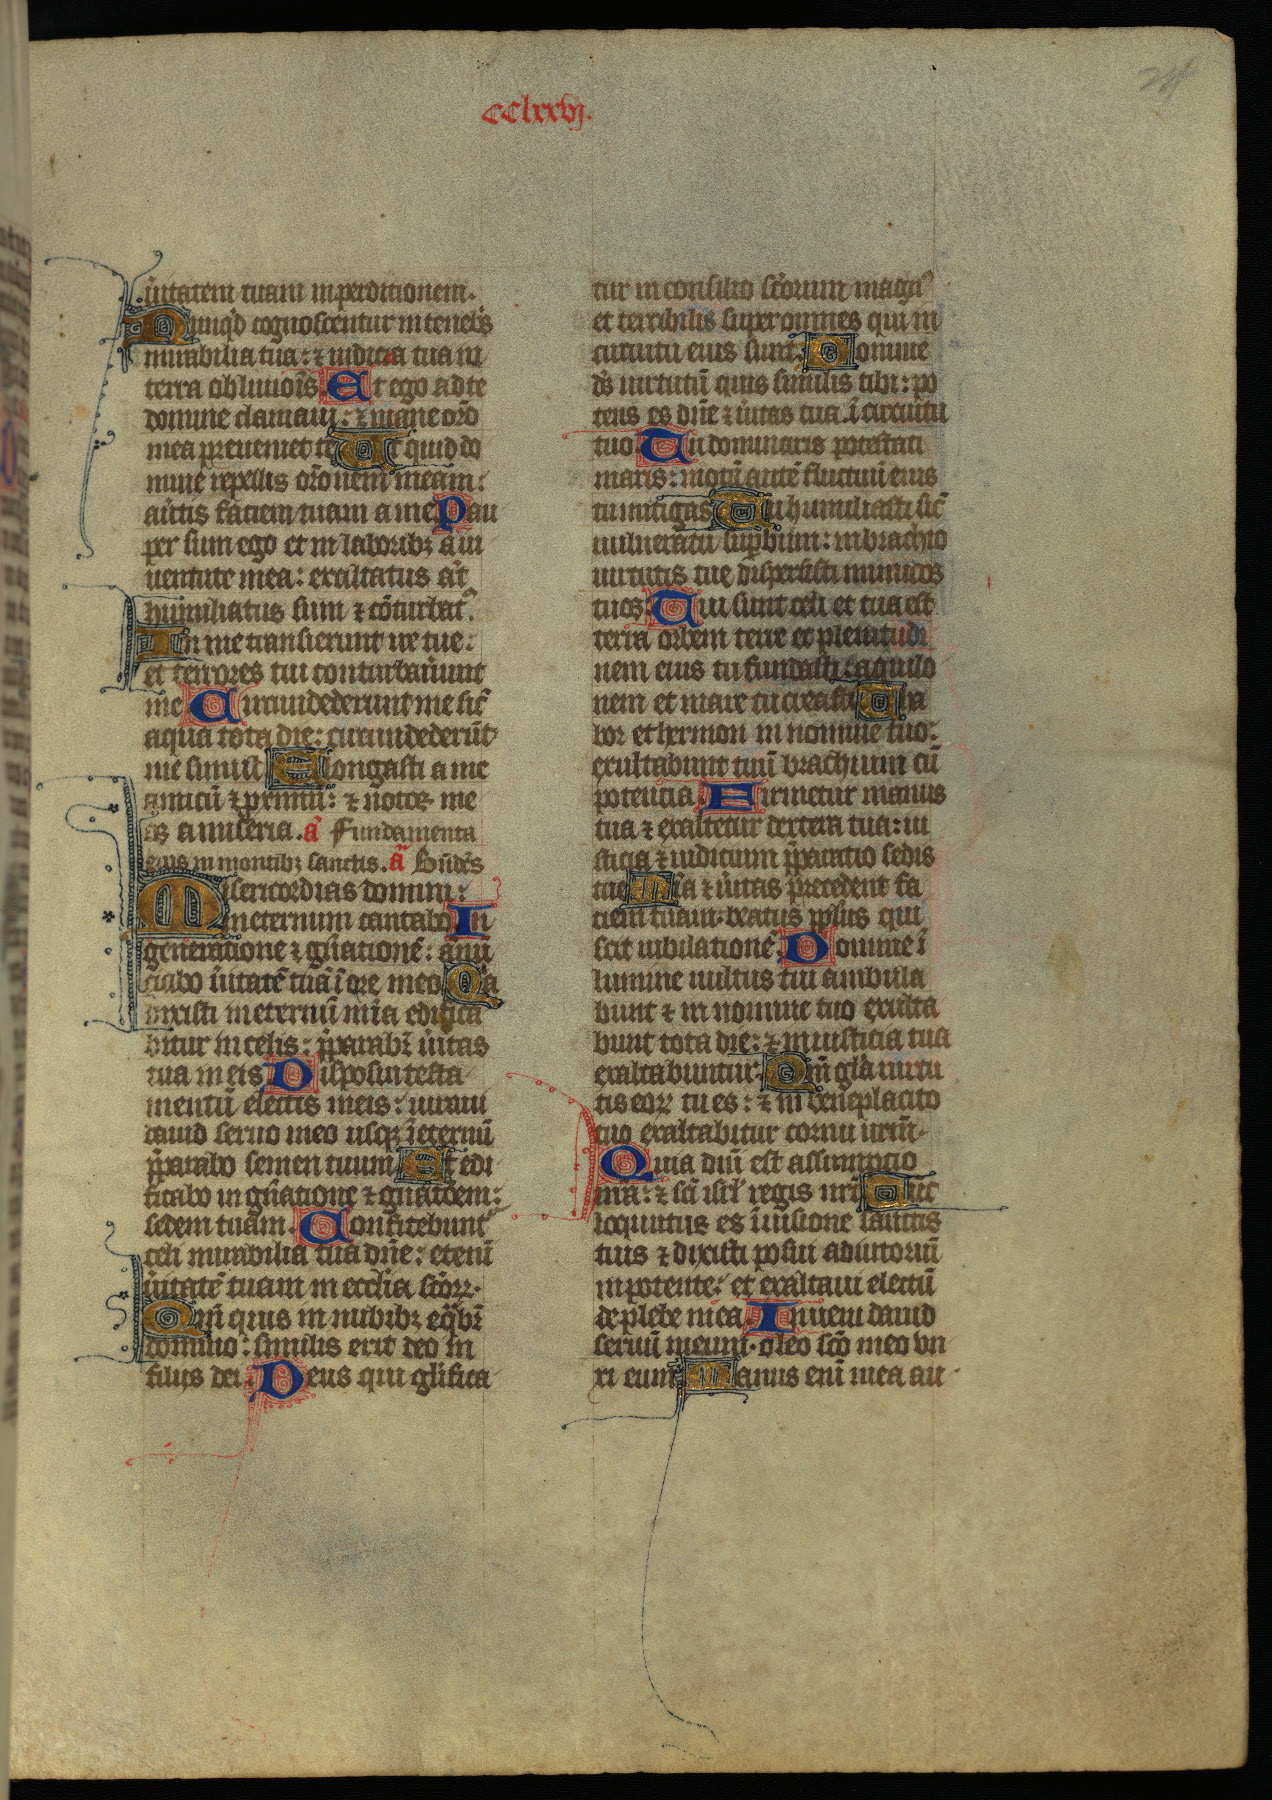 CClxxvj.
ũitatem tuam in perditionem.
Nunq̃d cognoscentur in teneb̾s
mirabilia tua: ⁊ iusticia tua in
terra obliuiõis Et ego ad te
domine clamaui: ⁊ mane or̃o
mea preueniet te Ut quid do
mine repellis or̃onem meam:
au̾tis faciem tuam a me Pau
per sum ego et in laboribꝫ a iu
uentute mea: exaltatus aũt
humiliatus sum ⁊ cõturbatꝰ
In me transierunt ire tue:
et terrores tui conturbau̾unt
me Circumdederunt me sic̃
aqua tota die: circumdederũt
me simul Elongasti a me
amicũ ⁊ proximũ: ⁊ notos me
os a miseria. ã Fundamenta
eius in montibꝫ sanctis. ã Bñds̃
Misericordias domini:
in eternum cantabo In
generatione ⁊ gñationẽ: annũ
ciabo ũitatẽ tuã ĩ ore meo Qa
dixisti in eternũ mĩa edifica
bitur in celis: p̃parabit̾ ũitas
tua in eis Disposui testa
mentũ electis meis: iuraui
dauid seruo meo usqꝫ ĩ eternũ
p̃parabo semen tuum Et edi
ficabo in gñatione ⁊ gñatõem:
sedem tuam. Confitebunt᷑
celi mirabilia tua dñe: etenĩ
ũitatẽ tuam in ecc̃lia sc̃oꝝ.
Qm̃ quis in nubibꝫ eq̃bit᷑
domino: similis erit deo in
filiis dei. Deus qui gl̃ifica
tur in consilio sc̃orum magnꝰ
et terribilis super omnes qui in
circuitu eius sunt: Domine
ds̃ uirtutũ quis similis tibi: po
tens es dñe ⁊ ũitas tua ĩ circuitu
tuo Tu dominaris potestati
maris: motũ autẽ fluctuũ eius
tu mitigas Tu humiliasti sic̃
uulneratũ suꝑbum: in brachio
uirtutis tue dispersisti inimicos
tuos: Tui sunt celi et tua est
terra orbem terre et plenitudi
nem eius tu fundasti: aquilo
nem et mare tu creasti Tha
bor et hermon in nomine tuo:
exultabunt tuũ brachium cũ
potencia Firmetur manus
tua ⁊ exaltetur dextera tua: iu
sticia ⁊ iudicium p̃paratio sedis
tue Mĩa ⁊ ũitas p̃cedent fa
ciem tuam: beatus pp̃lus qui
scit iubilationẽ. Domine ĩ
lumine uultus tui ambula
bunt ⁊ in nomine tuo exulta
bunt tota die: ⁊ in iusticia tua
exaltabuntur. Qm̃ gl̃a uirtu
tis eoꝝ tu es: ⁊ in beneplacito
tuo exaltabitur cornu nrm̃.
Quia dñi est assumptio
nr̃a: ⁊ sc̃i isrl̃ regis nr̃i Tũc
loquutus es ĩ uisione sanctis
tuis ⁊ dixisti posui adiutoriũ
in potente: et exaltaui electũ
de plebe mea. Inueni dauid
seruũ meum: oleo sc̃o meo vn
xi eum. Manus enĩ mea au